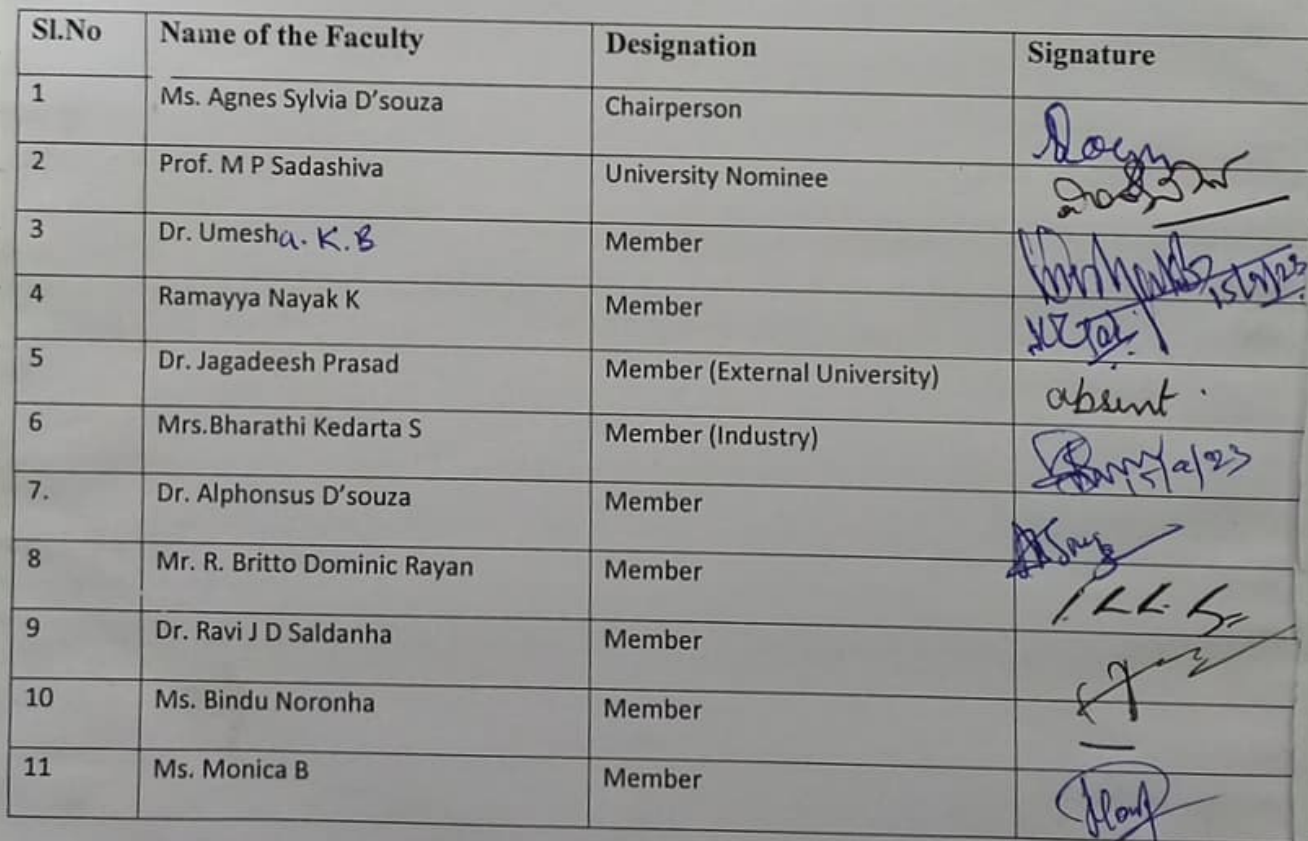 Sl.No Name of the Faculty Designation Signature
1 Ms. Agnes Sylvia D'souza Chairperson
2 Prof. M P Sadashiva University Nominee
3 Dr. Umesha. K.B Member
4 Ramayya Nayak K Member
5 Dr. Jagadeesh Prasad Member (External University) absent
6 Mrs.Bharathi Kedarta S Member (Industry)
7. Dr. Alphonsus D'souza Member
8 Mr. R. Britto Dominic Rayan Member
9 Dr. Ravi J D Saldanha Member
10 Ms. Bindu Noronha Member
11 Ms. Monica B Member